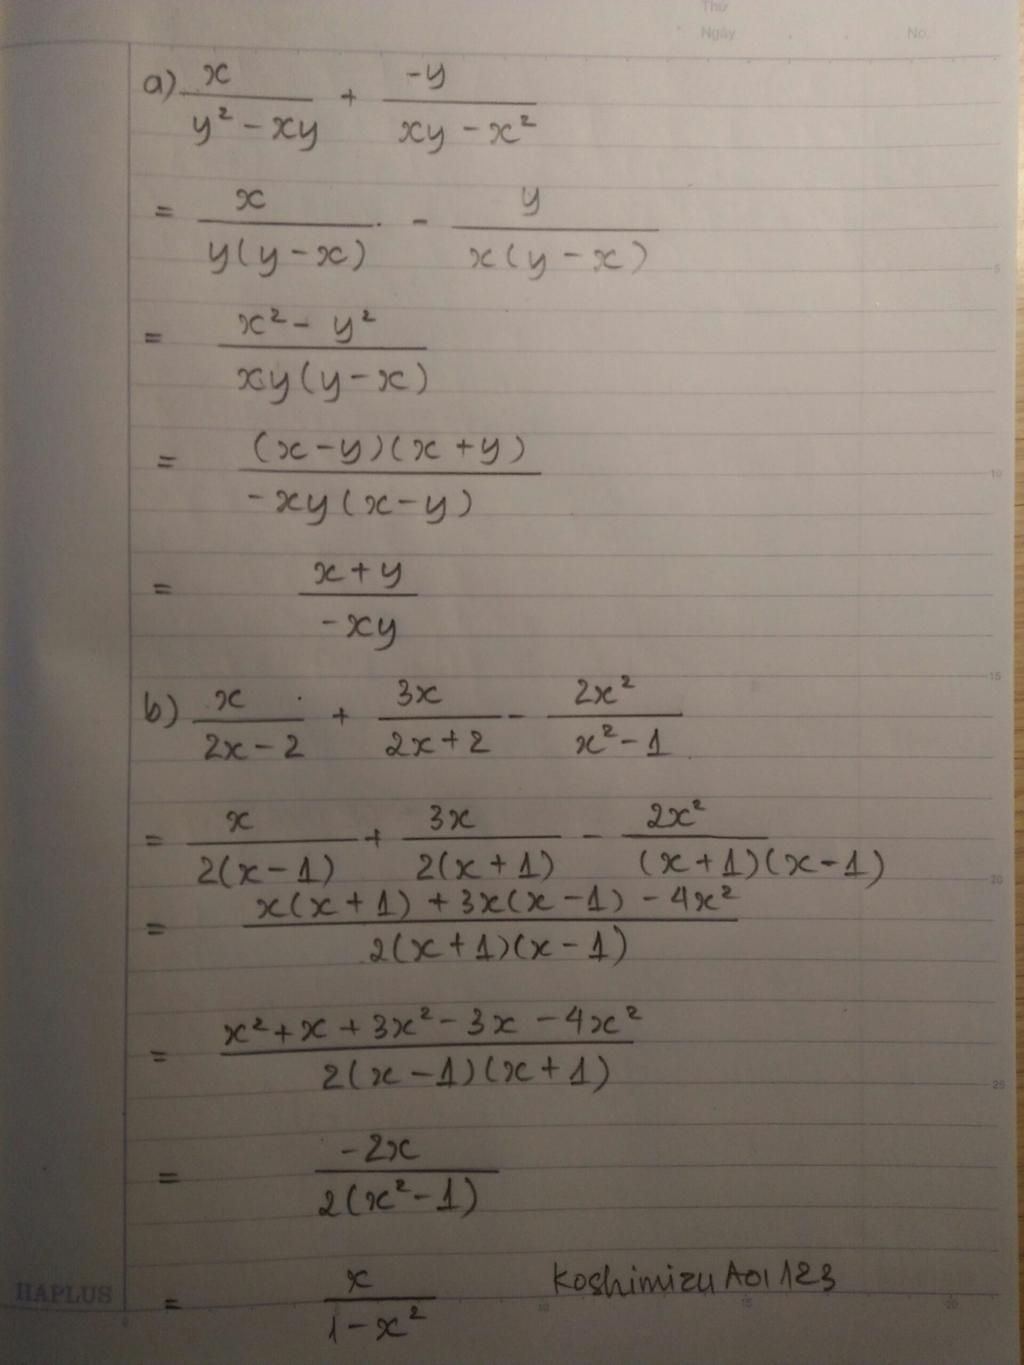 Thứ
Ngày . . No.
a) x/(y² - xy) + -y/(xy - x²)
= x/(y(y - x)) - y/(x(y - x))
= (x² - y²)/(xy(y - x))
= ((x - y)(x + y))/(-xy(x - y))
= (x + y)/(-xy)
b) x/(2x - 2) + 3x/(2x + 2) - 2x²/(x² - 1)
= x/(2(x - 1)) + 3x/(2(x + 1)) - 2x²/((x + 1)(x - 1))
= (x(x + 1) + 3x(x - 1) - 4x²)/(2(x + 1)(x - 1))
= (x² + x + 3x² - 3x - 4x²)/(2(x - 1)(x + 1))
= -2x/(2(x² - 1))
= x/(1 - x²)
KoshimizuAoi123
HAPLUS
5
10
15
20
25
0
10
15
20